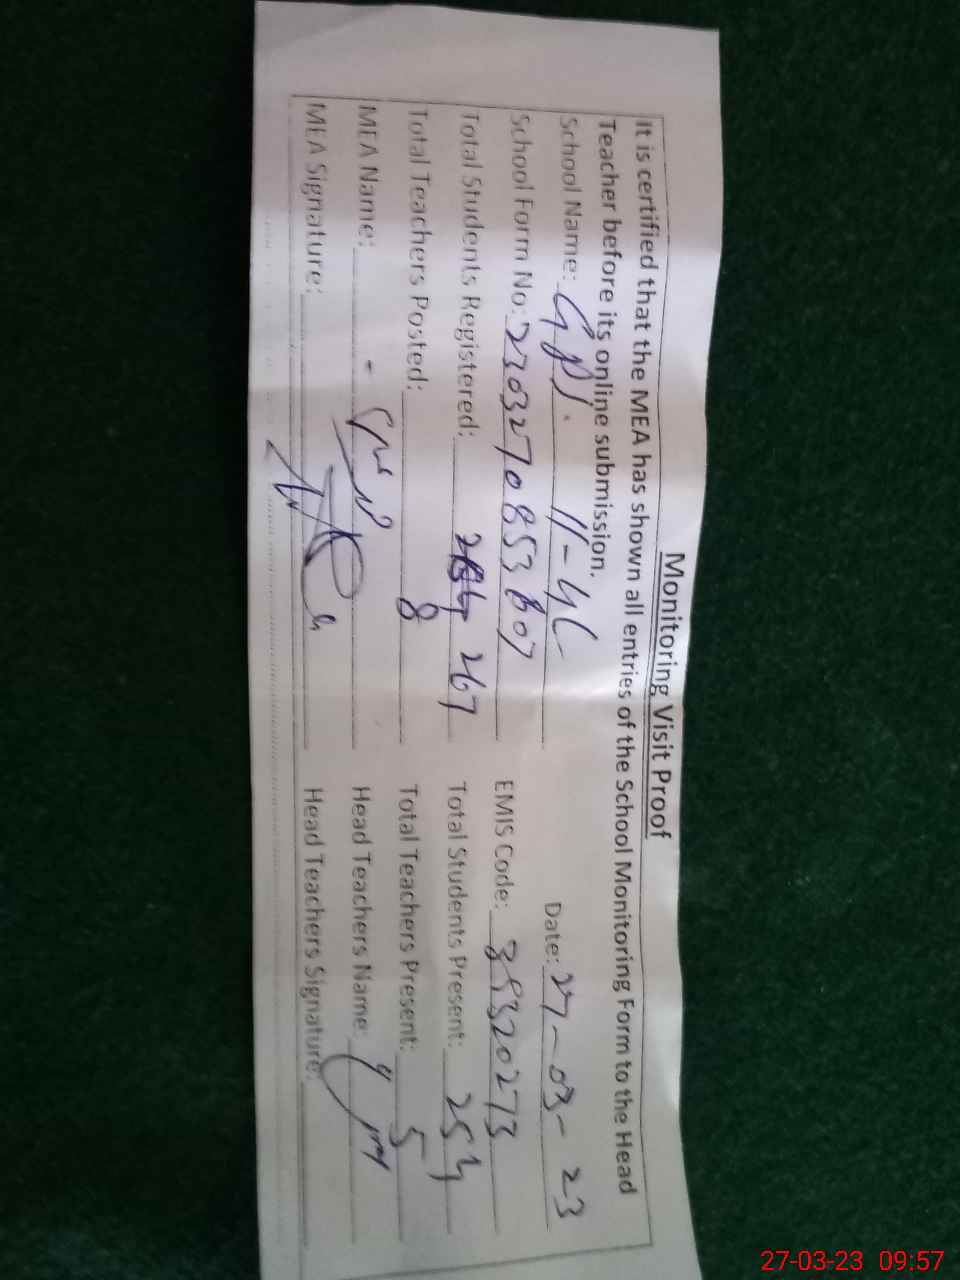 Monitoring Visit Proof
It is certified that the MEA has shown all entries of the School Monitoring Form to the Head
Teacher before its online submission.
School Name: GPS. 11-4L Date: 27-03-23
School Form No: 2303270853607 EMIS Code: 39320273
Total Students Registered: 267 Total Students Present: 254
Total Teachers Posted: 8 Total Teachers Present: 5
MEA Name: Head Teachers Name:
MEA Signature: Head Teachers Signature:
27-03-23 09:57